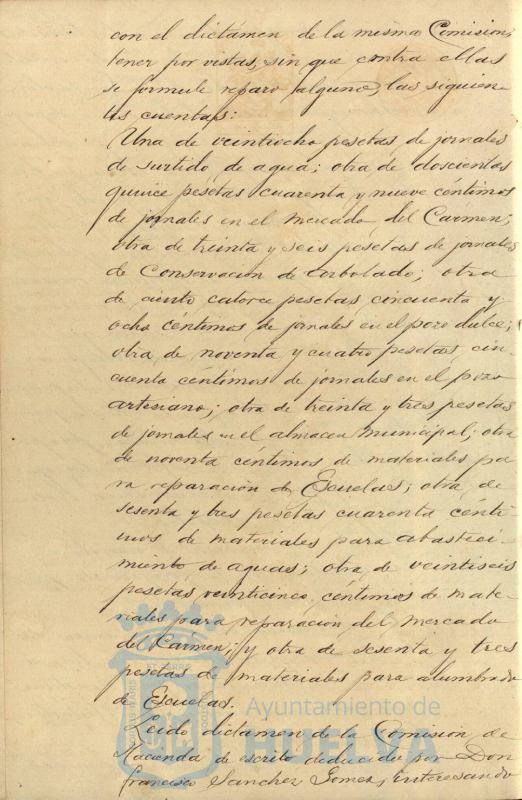 con el dictámen de la misma Comision,
tener por vistas, sin que contra ellas
se formule reparo alguno, las siguien
tes cuentas:
Una de veintiocho pesetas de jornales
de surtido de agua; otra de doscientas
quince pesetas cuarenta y nueve céntimos
de jornales en el mercado del Carmen;
otra de treinta y seis pesetas de jornales
de Conservacion de arbolado; otra
de ciento catorce pesetas cincuenta y
ocho céntimos de jornales en el pozo dulce;
otra de noventa y cuatro pesetas, cin-
cuenta céntimos de jornales en el pozo
artesiano; otra de treinta y tres pesetas
de jornales en el almacen municipal; otra
de noventa céntimos de materiales pa
ra reparación de Escuelas; otra de
sesenta y tres pesetas cuarenta cénti
mos de materiales para abasteci
miento de aguas; otra de veintiseis
pesetas veinticinco céntimos de mate-
riales para reparacion del mercado
del Carmen; y otra de sesenta y tres
pesetas de materiales para alumbrado
de Escuelas.
Leido dictamen de la Comision de
Hacienda de escrito deducido por Don
Francisco Sanchez Gomez, interesando
Ayuntamiento de
HUELVA